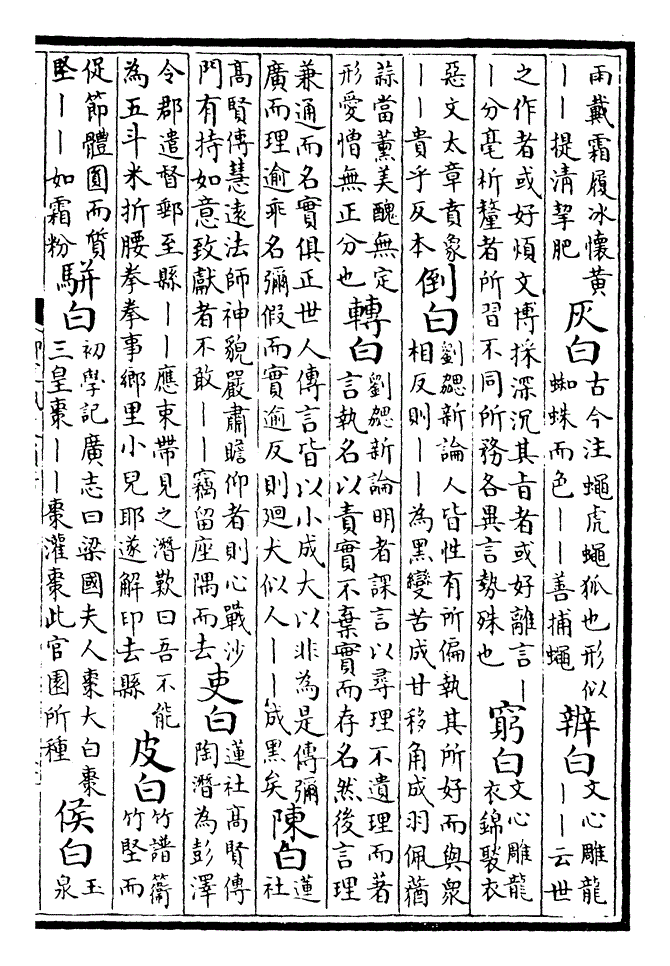 雨戴霜履冰懷黄
——提清挈肥
灰白
古今注蠅虎蠅狐也形似
蜘蛛而色——善捕蠅
辨白
文心雕龍
——云世
之作者或好煩文博採深沉其旨者或好離言—
—分毫析釐者所習不同所務各異言勢殊也
窮白
文心雕龍
衣錦褧衣
惡文太章賁象
——貴乎反本
倒白
劉勰新論人皆性有所偏執其所好而與衆
相反則——為黑變苦成甘移角成羽佩蕕
蒜當薰美醜無定
形愛憎無正分也
轉白
劉勰新論明者課言以尋理不遺理而著
言執名以責實不棄實而存名然後言理
兼通而名實俱正世人傳言皆以小成大以非為是傳彌
廣而理逾乖名彌假而實逾反則廻犬似人——成黑矣
陳白
蓮
社
高賢傳慧遠法師神貌嚴肅瞻仰者則心戰沙
門有持如意致獻者不敢——竊留座隅而去
吏白
蓮社高賢傳
陶潛為彭澤
令郡遣督郵至縣——應束帶見之潛歎曰吾不能
為五斗米折腰拳拳事鄉里小兒耶遂解印去縣
皮白
竹譜
竹堅而
促節體圓而質
堅——如霜粉
騈白
初學記廣志曰梁國夫人棗大白棗
三皇棗——棗灌棗此官園所種
侯白
玉
泉